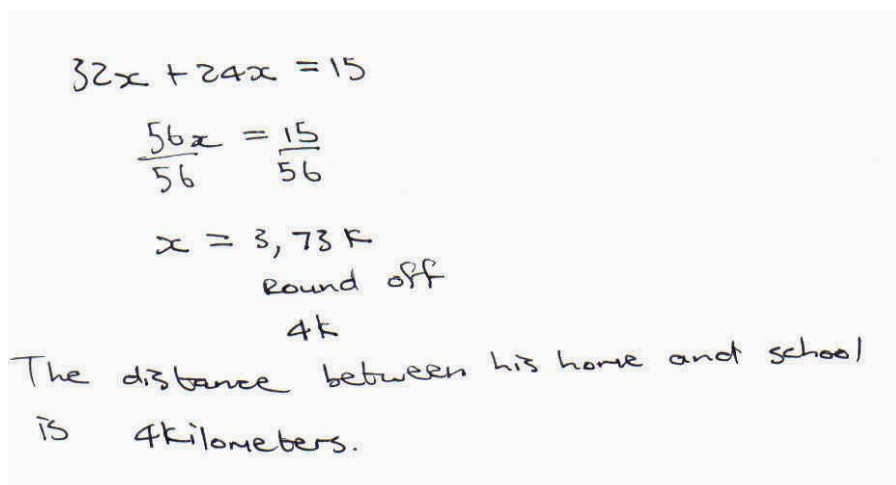 32x + 24x = 15
56x/56 = 15/56
x = 3,73 K
Round off
4k
The distance between his home and school
is 4kilometers.